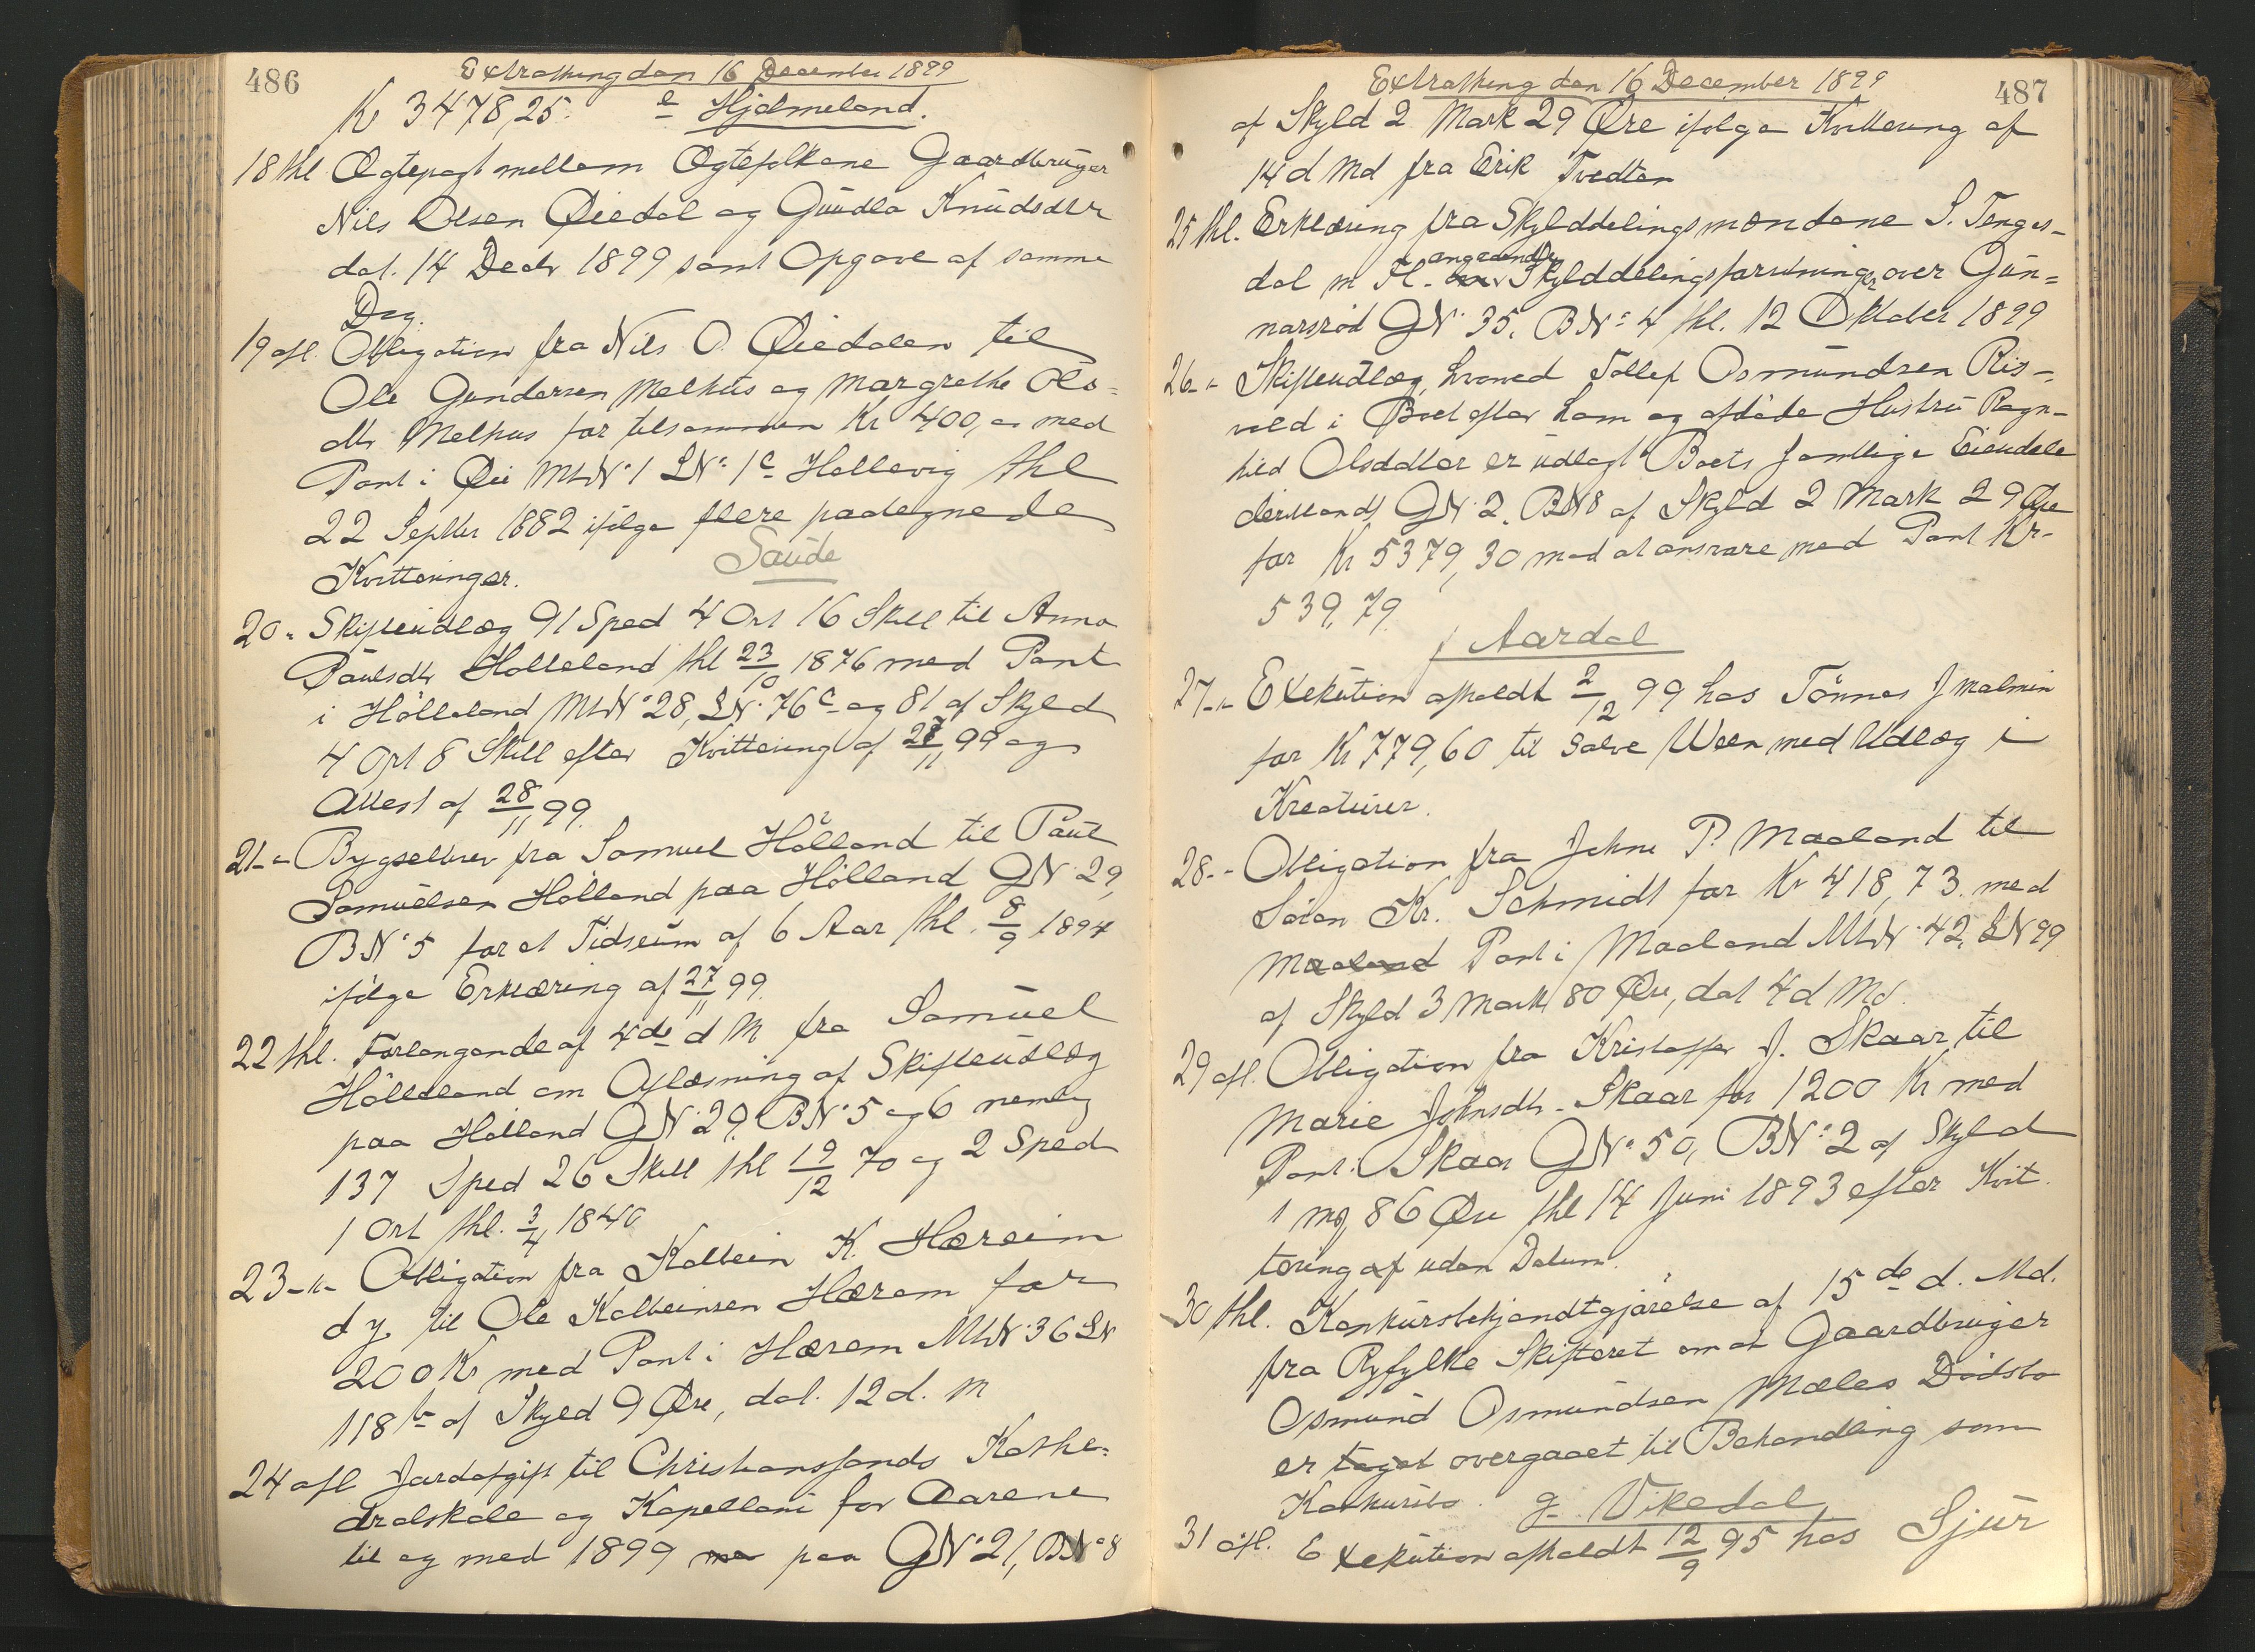 486
Extrathing den 16 December 1899
Kr 3478,25. e Hjelmeland.
18 thl Ægtepagt mellem Ægtefolkene Gaardbruger
Nils Olsen Øiedal og Gundla Knudsdtr
dat. 14 Decbr 1899 samt Opgave af samme
Dag.
19 afl. Obligation fra Nils O. Øiedalen til
Ole Gundersen Melhus og Margrethe Ols-
dtr Melhus for tilsammen Kr 400, med
Pant i Øie MtrN: 1 LN: 1c Hallevig thl
22 Septbr 1882 ifølge flere padegnede
Kvitteringer. Saude
20 " Skifteudlæg 91 Spd 4 Ort 16 Skill til Anna
Paulsdtr Hølleland thl 23/10 1876 med Pant
i Hølleland MtrN: 28, LN: 76c og 81 af Skyld
4 Ort 8 Skill efter Kvittering af 27/11 99 og
Attest af 28/11 99.
21 - " Bygselbrev fra Samuel Hølland til Paul
Samuelsen Hølland paa Hølland GN: 29,
BN: 5 for et Tidsrum af 6 Aar thl. 8/9 1894
ifølge Erklæring af 27/11 99.
22 thl. Forlangende af 4de d M fra Samuel
Hølleland om Aflæsning af Skifteudlæg
paa Hølland GN: 29, BN: 5 og 6 nemlig
137 Spd 26 Skill thl 19/12 70 og 2 Spd
1 Ort thl. 3/4 1840
23 - " - Obligation fra Kolbein K. Hæreim
d y. til Ole Kolbeinsen Hærem for
200 Kr med Pant i Hærem MtrN: 36 LN
118 b af Skyld 9 Øre, dat. 12 d. M
24 afl Jordafgift til Christiansfands Kathe-
dralskole og Kapellani for Aarene
til og med 1899 paa GN: 21, BN: 8
487
Extrathing den 16 December 1899
af Skyld 2 Mark 29 Øre ifølge Kvittering af
14 d Md fra Erik Tvedten
25 thl. Erklæring fra Skylddelingsmændene S. Tenges-
dal m Fl. angaaende Skylddelingsforretning over Gun-
narsrød GN: 35, BN: 4 thl. 12 Oktober 1899
26 - " Skifteudlæg, hvorved Tollef Osmundsen Ris-
vold i Boet efter ham og afdøde Hustru Ragn-
hild Olsdatter er udlagt Boets samtlige Eiendele
deriblandt GN: 2, BN 8 af Skyld 2 Mark 29 Øre
for Kr 5379,30 mod at ansvare med Pant Kr
539,79.
f Aardal
27 - " - Exekution afholdt 2/12 99 hos Tønnes J Malmin
for Kr 779,60 til Salve Ween med Udlæg i
Kreaturer.
28 - - Obligation fra Johne P. Maaland til
Søren Kr. Schmidt for Kr 418,73. med
Maaland Pant i Maaland MtrN: 42, LN 99
af Skyld 3 Mark 80 Øre, dat 4 d Md.
29 afl. Obligation fra Kristoffer J. Skaar til
Marie Johnsdtr Skaar for 1200 Kr med
Pant i Skaar GN: 50, BN: 2 af Skyld
1 M 86 Øre thl 14 Juni 1893 efter Kvit-
tering af uden Datum.
30 thl. Konkursbekjendtgjørelse af 15 de d. Md.
fra Ryfylke Skifteret om at Gaardbruger
Osmund Osmundsen Mæles Dødsbo
er taget overgaaet til Behandling som
Konkursbo. g. Vikedal
31 afl. Exekution afholdt 12/9 95 hos Sjur